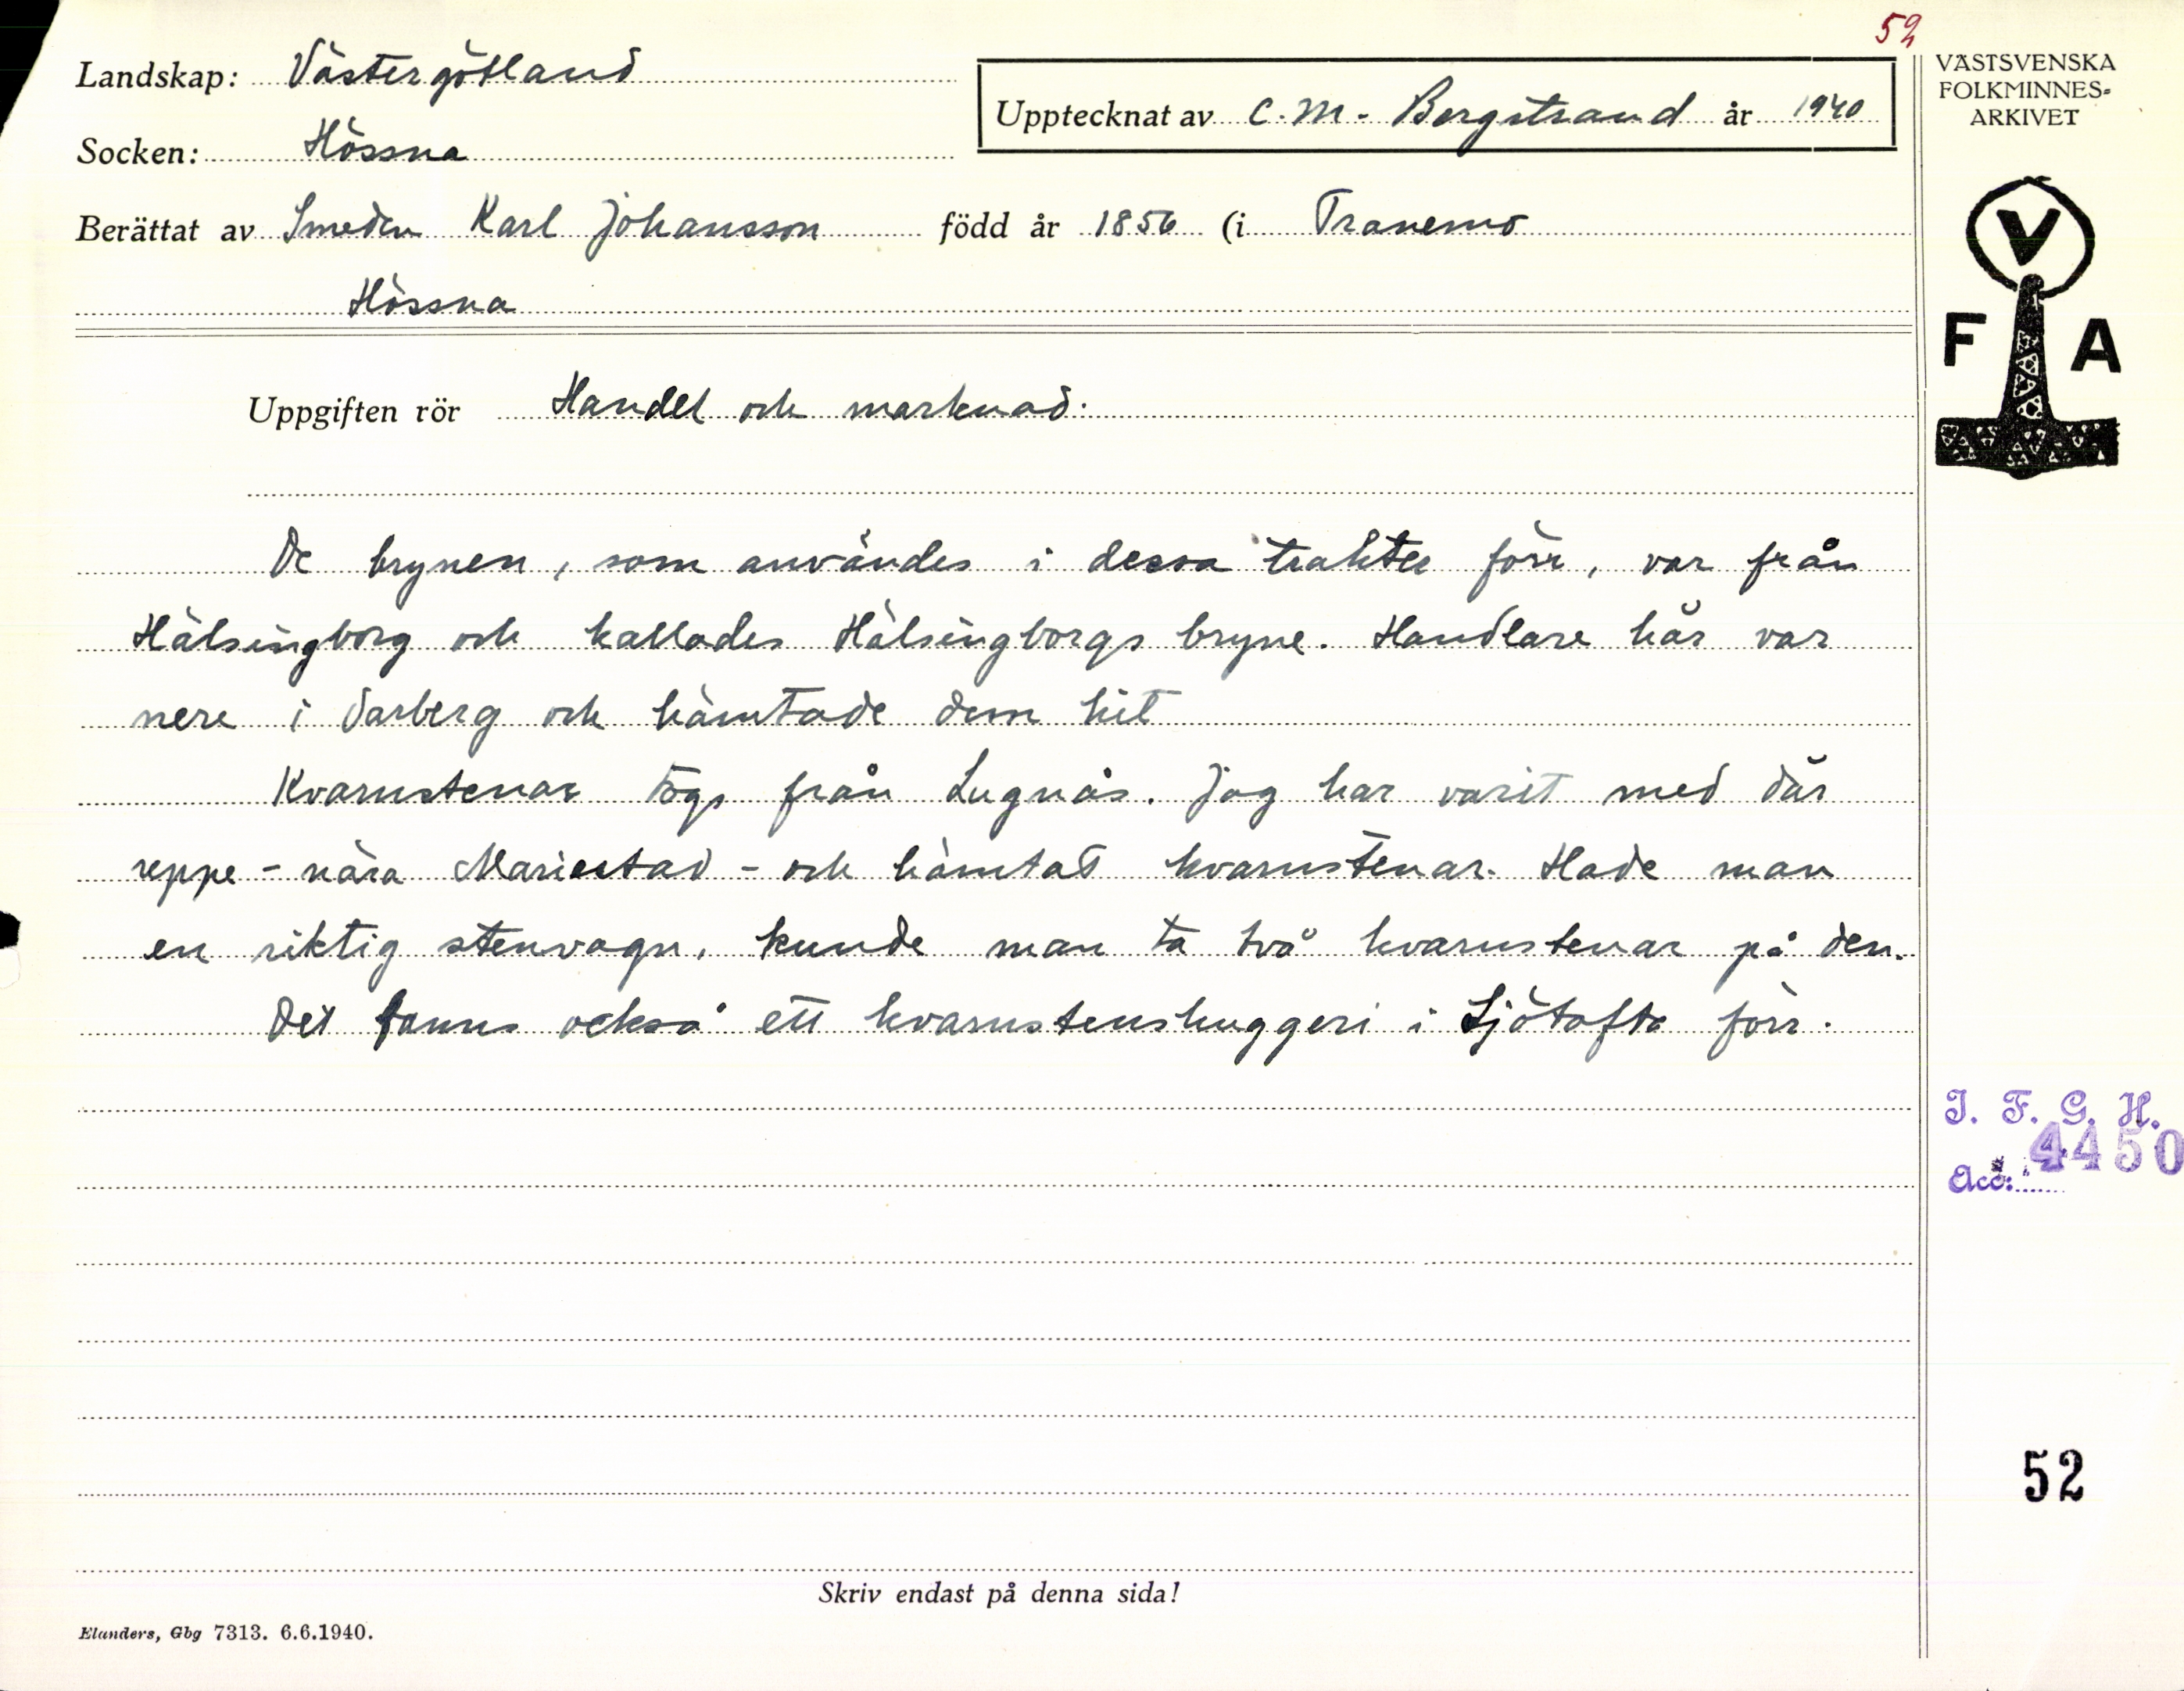 52
Landskap: Västergötland
Socken: Hössna
Upptecknat av C.M. Bergstrand år 1940
Berättat av Smeden Karl Johansson född år 1856 (i Tranemo
Hössna
VÄSTSVENSKA
FOLKMINNES-
ARKIVET
V
F A
Uppgiften rör Handel och marknad.
De brynen, som användes i dessa trakter förr, var från
Hälsingborg och kallades Hälsingborgs bryne. Handlare här var
nere i Varberg och hämtade dem hit
Kvarnstenar togs från Lugnås. Jag har varit med där
uppe - nära Mariestad - och hämtat kvarnstenar. Hade man
en riktig stenvagn, kunde man ta två kvarnstenar på den.
Det fanns också ett kvarnstenshuggeri i Ljötofta förr.
I. F. G. H.
Acc: 4450
52
Skriv endast på denna sida!
Elanders, Gbg 7313. 6.6.1940.